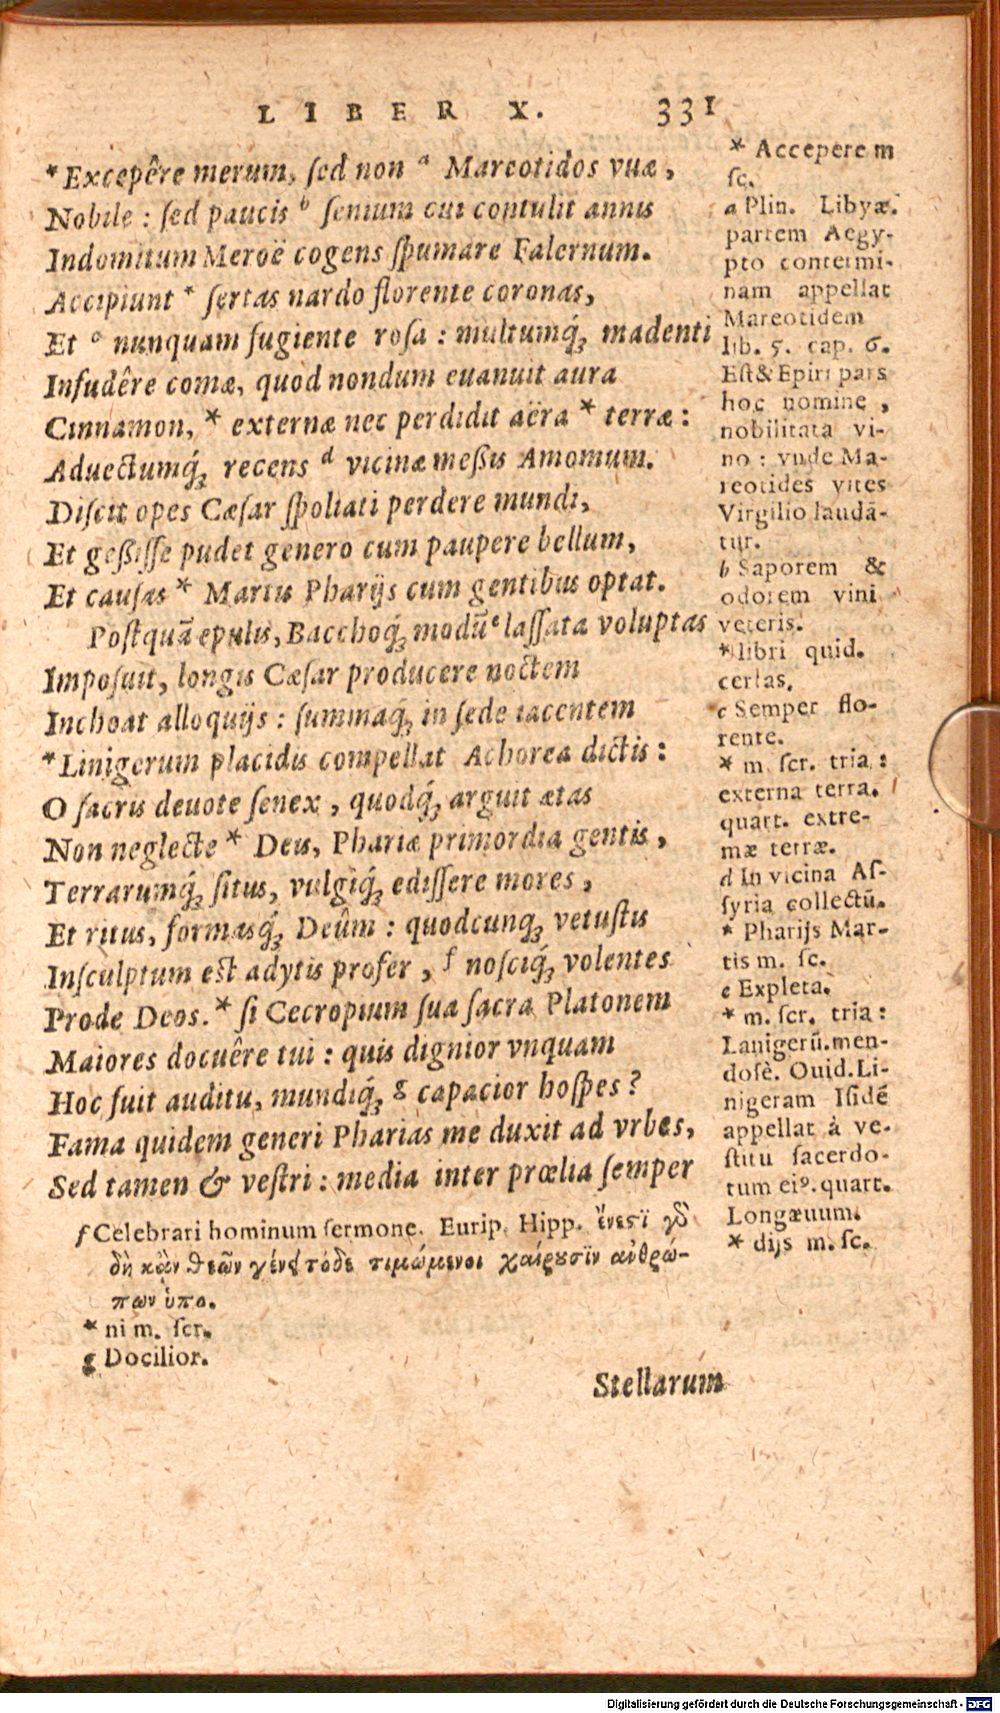 LIBER X. 331
*Excepêre merum, ſed non ᵃ Mareotidos vuæ,
Nobile: ſed paucis ᵇ ſenium cui contulit annis
Indomitum Meroë cogens ſpumare Falernum.
Accipiunt * ſertas nardo florente coronas,
Et ᶜ nunquam fugiente roſa: multumq́ꝫ madenti
Infudêre comæ, quod nondum euanuit aura
Cinnamon, * externæ nec perdidit aëra * terræ:
Aduectumq́ꝫ recens ᵈ vicinæ meßis Amomum.
Diſcit opes Cæſar ſpoliati perdere mundi,
Et geßiſſe pudet genero cum paupere bellum,
Et cauſas * Martis Pharijs cum gentibus optat.
Poſtquā epulis, Bacchoq́ꝫ modū ᵉ laſſata voluptas
Impoſuit, longis Cæſar producere noctem
Inchoat alloquijs: ſummaq́ꝫ in ſede iacentem
*Linigerum placidis compellat Achorea dictis:
O ſacris deuote ſenex, quodq́ꝫ arguit ætas
Non neglecte * Deis, Phariæ primordia gentis,
Terrarumq́ꝫ ſitus, vulgiq́ꝫ ediſſere mores,
Et ritus, formasq́ꝫ Deûm: quodcunqꝫ vetuſtis
Inſculptum eſt adytis profer, ᶠ noſciq́ꝫ volentes
Prode Deos. * ſi Cecropium ſua ſacra Platonem
Maiores docuêre tui: quis dignior vnquam
Hoc fuit auditu, mundiq́ꝫ ᵍ capacior hoſpes?
Fama quidem generi Pharias me duxit ad vrbes,
Sed tamen & veſtri: media inter prœlia ſemper
* Accepere m
ſc.
a Plin. Libyæ.
partem Aegy-
pto contermi-
nam appellat
Mareotidem
lib. 5. cap. 6.
Eſt & Epiri pars
hoc nomine,
nobilitata vi-
no: vnde Ma-
reotides vites
Virgilio laudā-
tur.
b Saporem &
odorem vini
veteris.
* libri quid.
certas.
c Semper flo-
rente.
* m. ſcr. tria:
externa terra.
quart. extre-
mæ terræ.
d In vicina Aſ-
ſyria collectū.
* Pharijs Mar-
tis m. ſc.
e Expleta.
* m. ſcr. tria:
Lanigerū. men-
dosè. Ouid. Li-
nigeram Iſidē
appellat à ve-
ſtitu ſacerdo-
tum eiꝰ. quart.
Longæuum.
* dijs m. ſc.
f Celebrari hominum ſermone. Eurip. Hipp. ἔνεστι γὸ
δὴ κἂν θεῶν γένει τόδε τιμώμενοι χαίρουσιν ἀνθρώ-
πων ὑπο.
* ni m. ſcr.
g Docilior.
Stellarum
Digitalisierung gefördert durch die Deutsche Forschungsgemeinschaft - DFG